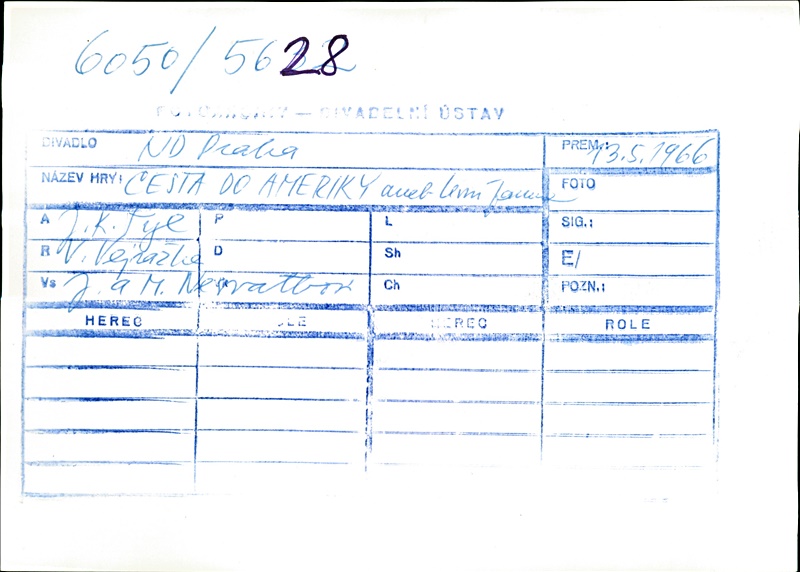 6050/5628
FOTOARCHIV — DIVADELNÍ ÚSTAV
DIVADLO ND Praha PREM.: 13.5.1966
NÁZEV HRY: CESTA DO AMERIKY aneb FOTO
A J.K. Tyl P L SIG.:
R V. Vejražka D Sh E/
Vs J. a M. Nesvatbovi Ch POZN.:
HEREC ROLE HEREC ROLE